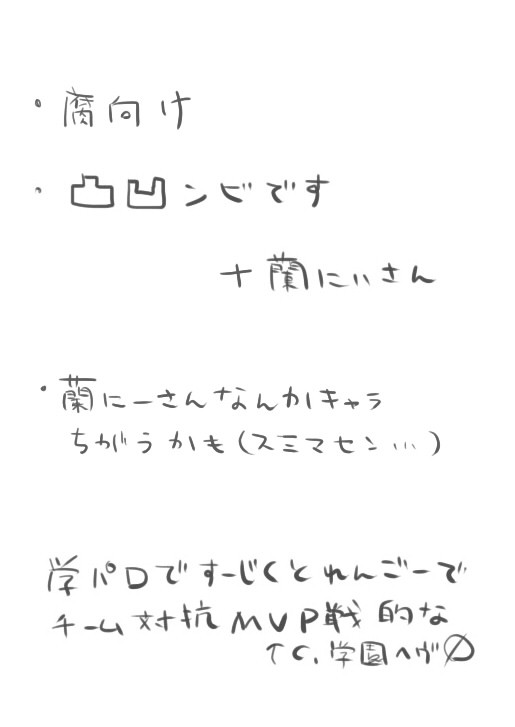 ・腐向け
・凸凹ンビです
+蘭にいさん
・蘭にーさんなんかキャラ
ちがうかも(スミマセン…)
学パロですーじくとれんごーで
チーム対抗MVP戦的な
学園ヘヴ